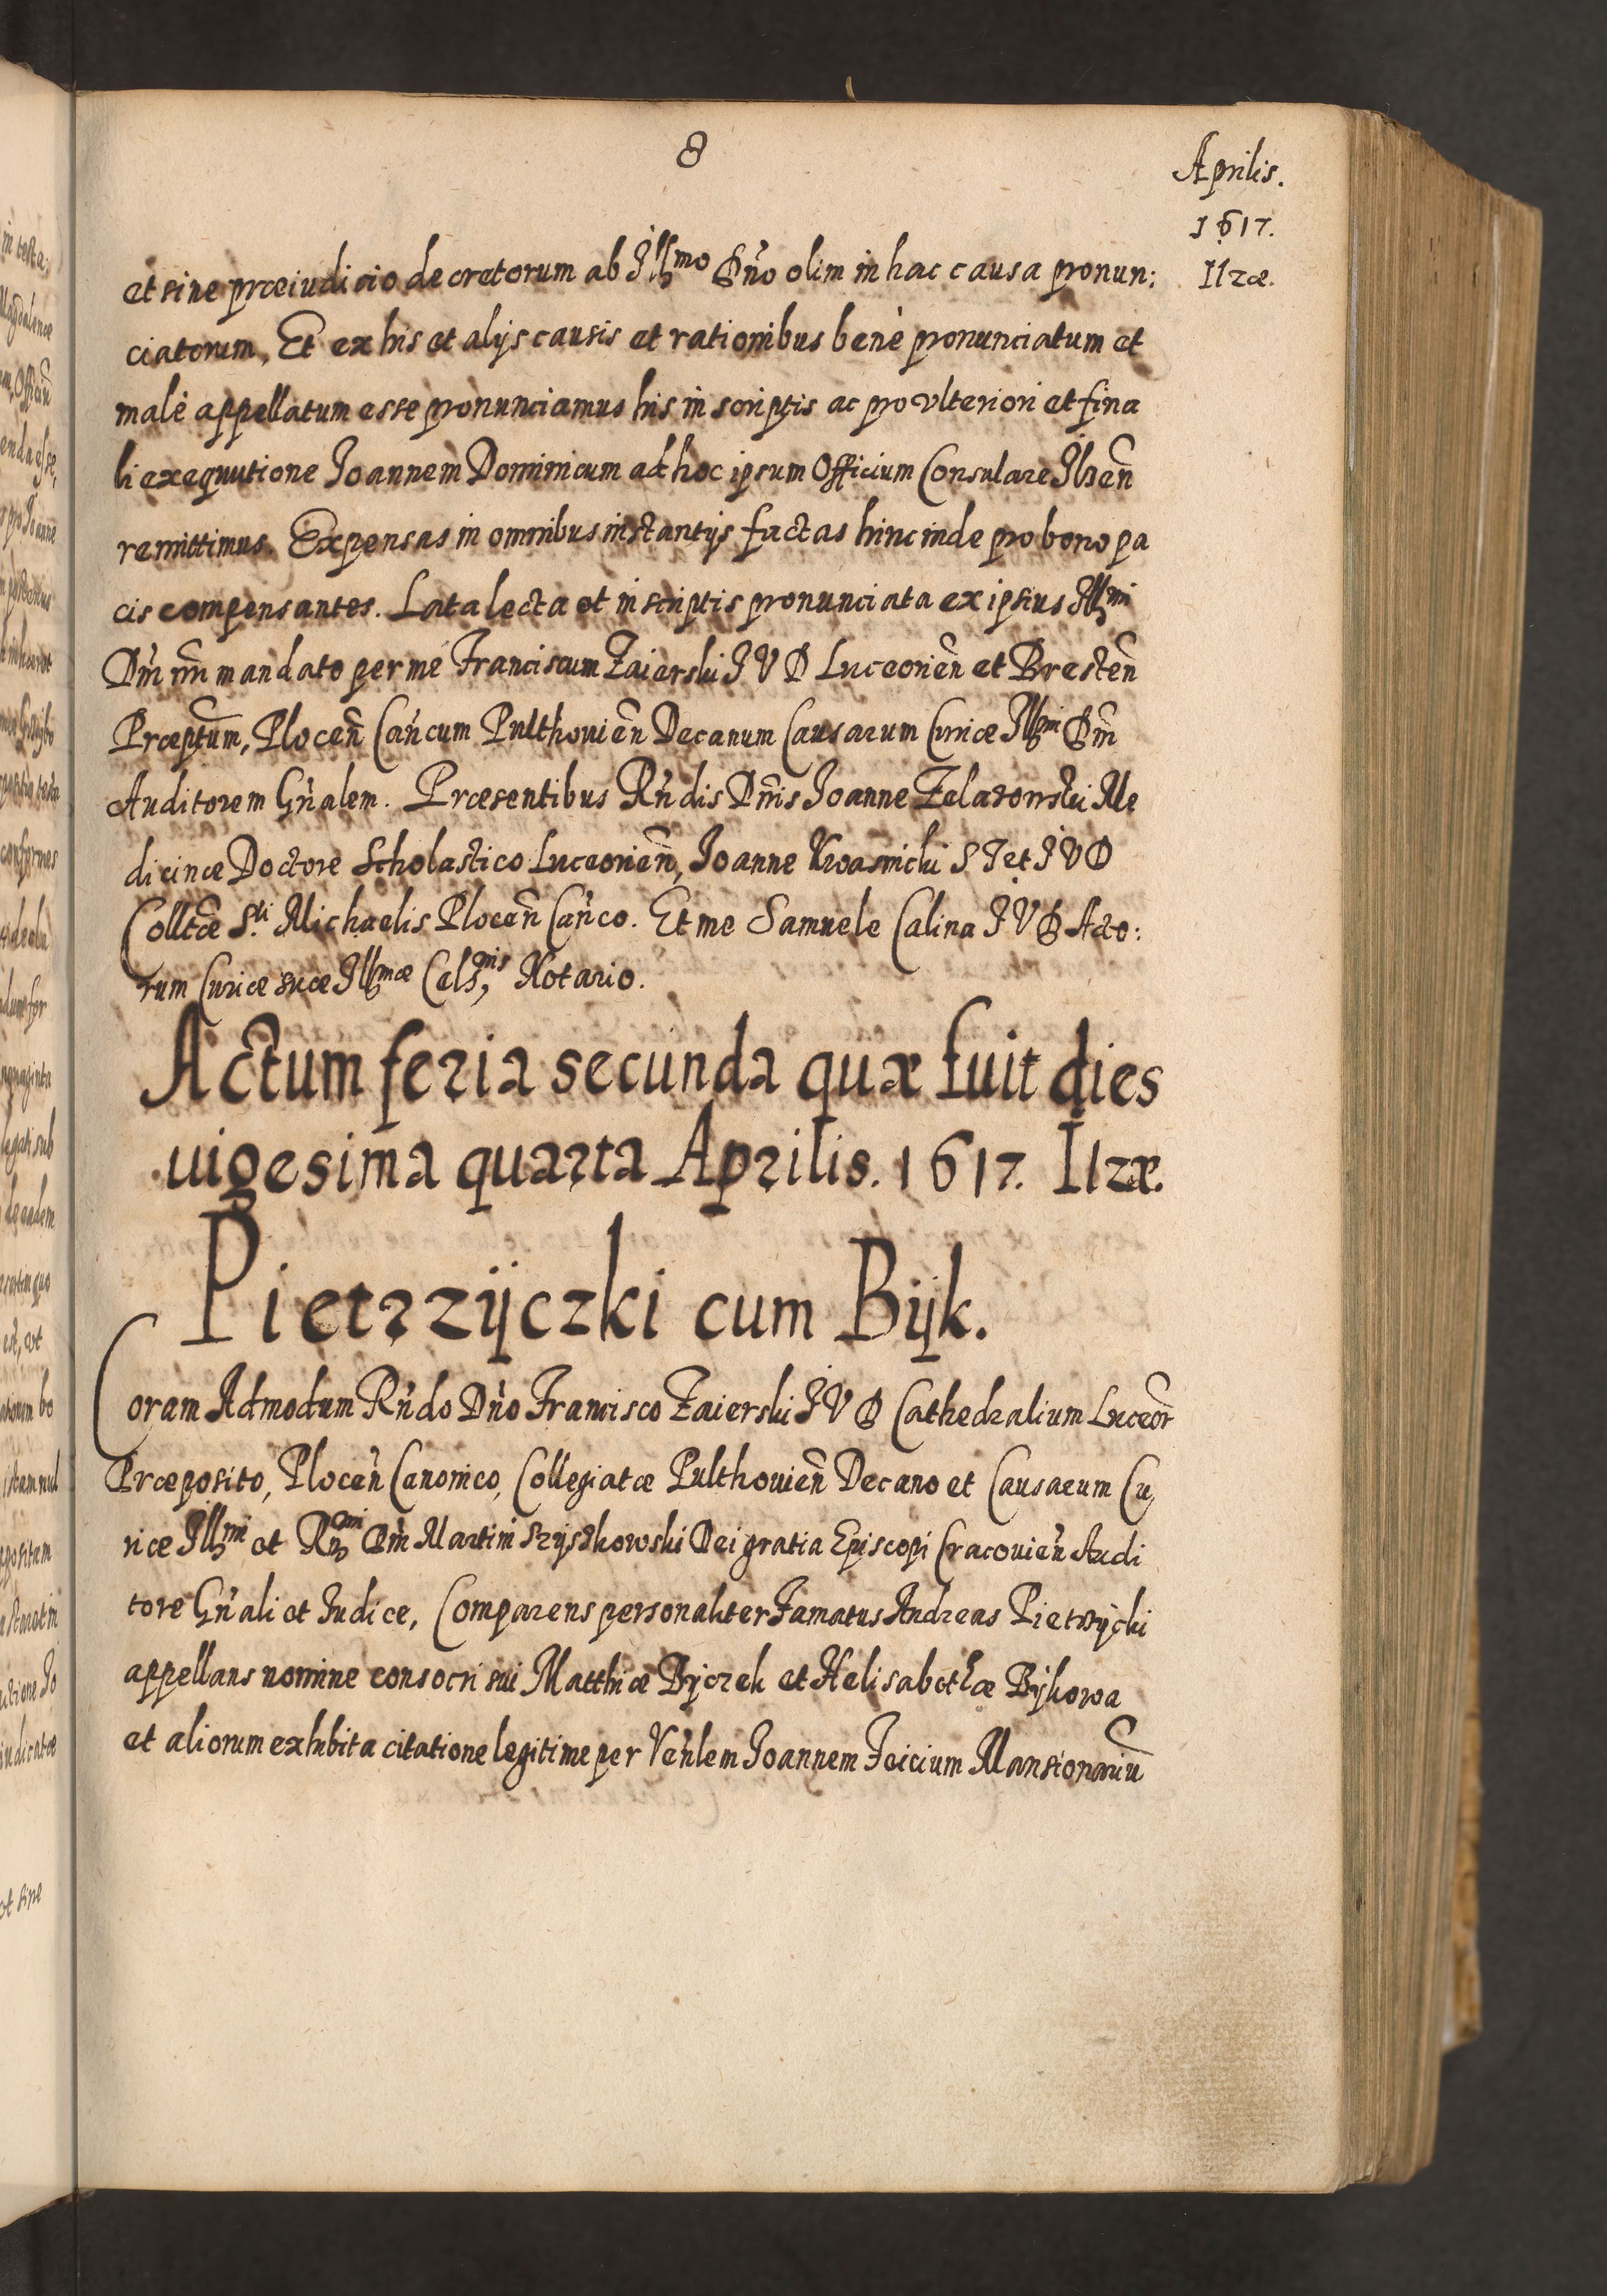 8
Aprilis.
1617.
Ilzæ.
et sine præiudicio decretorum ab Illmo Dño olim in hac causa pronun:
ciatorum, Et ex his et alijs causis et rationibus benè pronunciatum et
malè appellatum esse pronunciamus his in scriptis ac pro vlteriori et fina
li exequutione Joannem Dominicum ad hoc ipsum Officium Consulare Ilzen̄
remittimus. Expensas in omnibus instantijs factas hinc inde pro bono pa
cis compensantes. Lata lecta et in scriptis pronunciata ex ipsius Illmi
Dn̄i nr̄i mandato per me Franciscum Zaierski J V D Luceorien̄ et Bresten̄
Præptum̄, Plocen̄ Can̄cum Pulthouien̄ Decanum Causarum Curiæ Illmi Dn̄i
Auditorem Gñalem. Præsentibus Rñdis Dn̄is Joanne Zelazowski Me
dicinæ Doctore Scholastico Luceorien̄, Joanne Krasnicki S T et J V D
Colltǣ Sti Michaelis Plocen̄ Can̄co. Et me Samuele Calina J V D Acto:
rum Curiæ suæ Illmæ Celsnis Notario.
Actum feria secunda quæ fuit dies
uigesima quarta Aprilis. 1617. Ilzæ.
Pietrzÿczki cum Bÿk.
Coram Admodum Rñdo Dño Francisco Zaierski J V D Cathedralium Luceor̄
Præposito, Plocen̄ Canonico, Collegiatæ Pulthouien̄ Decano et Causarum Cu,
riæ Illmi et Rn̄mi Dn̄i Martini Szÿszkowski Dei gratia Episcopi Cracouien̄ Audi
tore Gñali et Iudice, Comparens personaliter Famatus Andreas Pietrzÿcki
appellans nomine consocri sui Matthiæ Bÿczek et Helisabethæ Bÿkowa
et aliorum exhibita citatione legitime per Ven̄lem Joannem Feicium Mansionariū